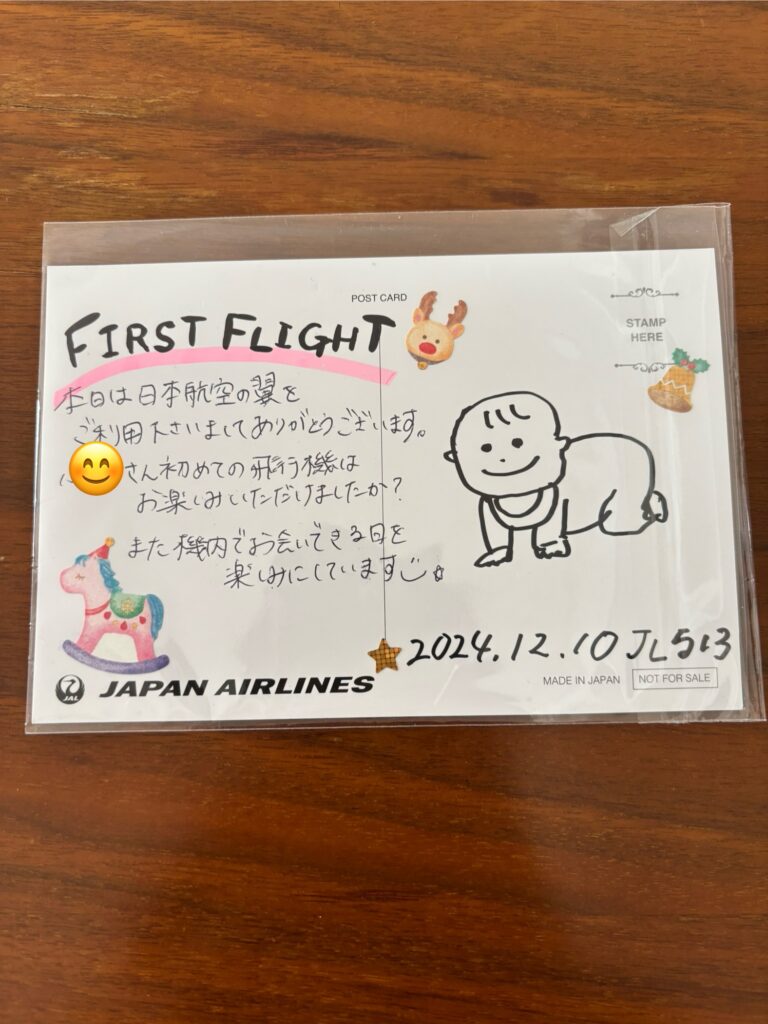 POST CARD
FIRST FLIGHT
STAMP
HERE
本日は日本航空の翼を
ご利用下さいましてありがとうございます。
さん初めての飛行機は
お楽しみいただけましたか?
また機内でお会いできる日を
楽しみにしています
2024.12.10 JL513
JAL
JAPAN AIRLINES
MADE IN JAPAN
NOT FOR SALE